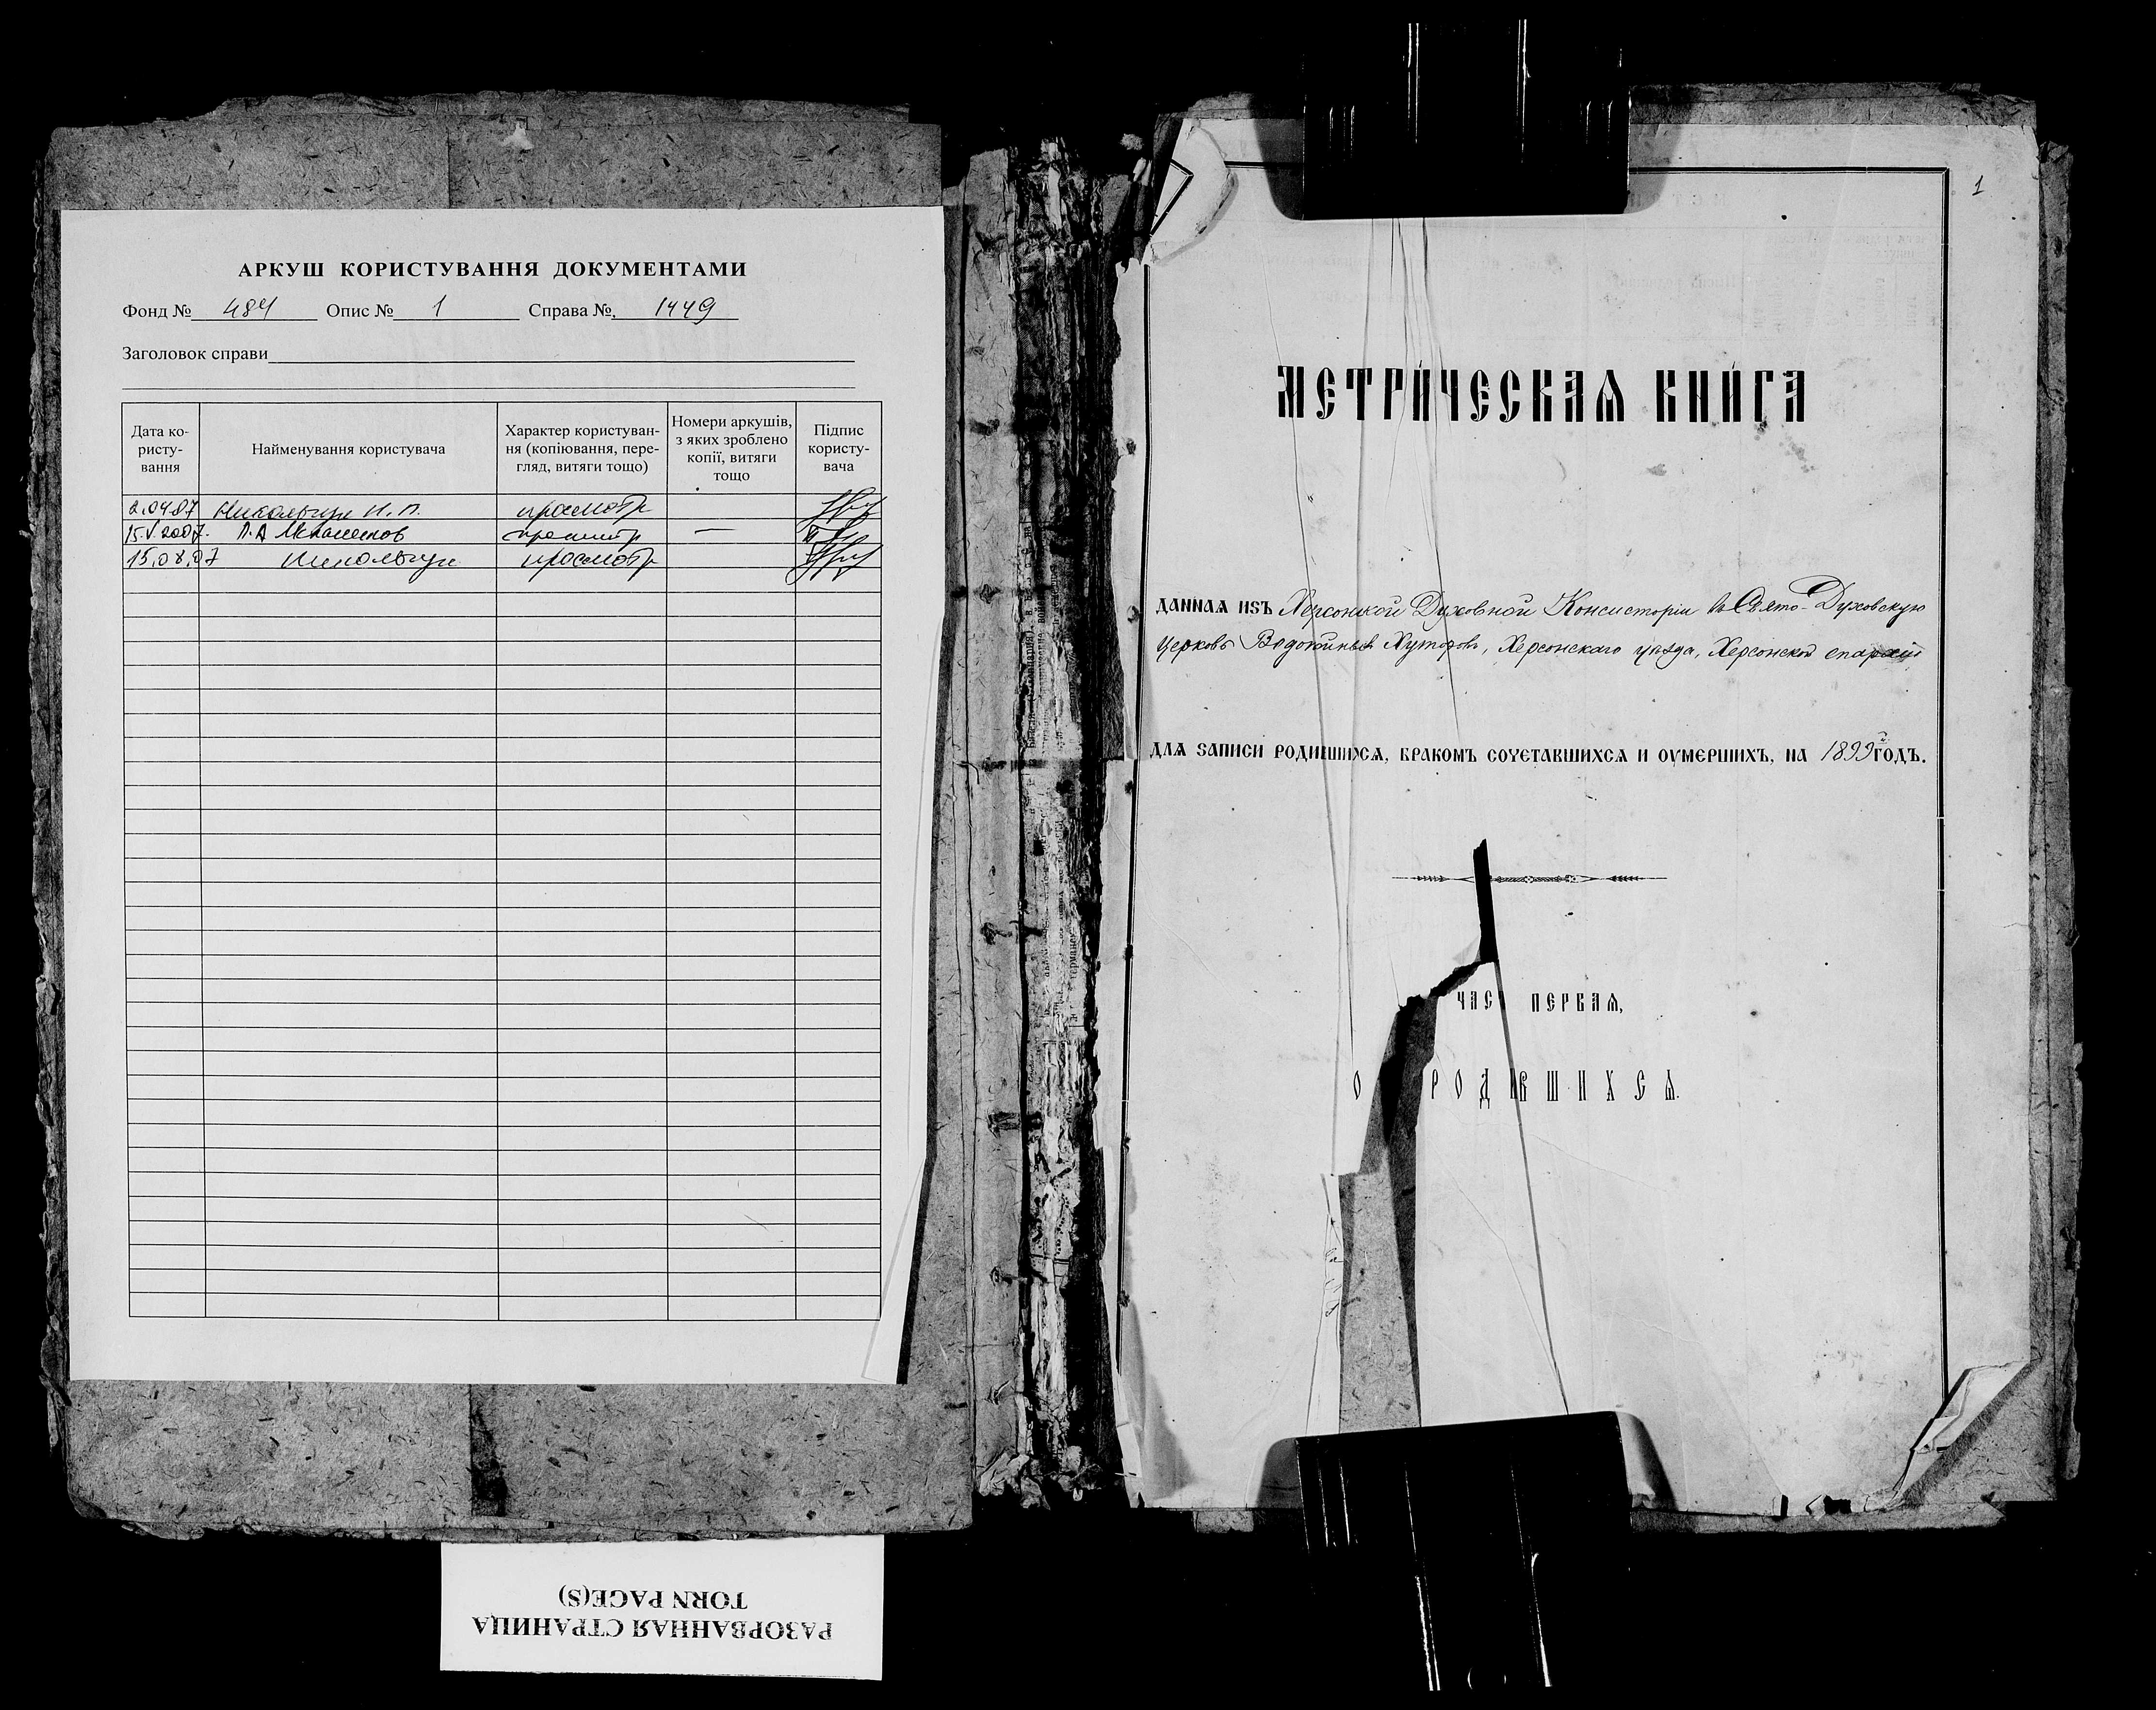 АРКУШ КОРИСТУВАННЯ ДОКУМЕНТАМИ
Фонд № 484 Опис № 1 Справа № 1449
Заголовок справи
Дата ко-
ристу-
вання
Найменування користувача
Характер користуван-
ня (копіювання, пере-
гляд, витяги тощо)
Номери аркушів,
з яких зроблено
копії, витяги
тощо
Підпис
користу-
вача
2.04.07 Никольчук Н.П. просмотр
15.V.2007. П.А. просмотр —
15.08.07 Никольчук просмотр
РАЗОРВАННАЯ СТРАНИЦА
TORN PAGE(S)
1
МЕТРИ́ЧЕСКАѦ КНИ́ГА
ДАННАѦ ИЗЪ Херсонской Духовной Консисторіи въ Свято-Духовскую
церковь Хуторовъ, Херсонскаго уѣзда, Херсонской епархіи
ДЛѦ ЗАПИСИ РОДИВШИХСѦ, БРАКОМЪ СОЧЕТАВШИХСѦ И ОУМЕРШИХЪ, НА 1899й ГОДЪ.
ЧАС ПЕРВАѦ,
О РОДИВШИХСѦ.